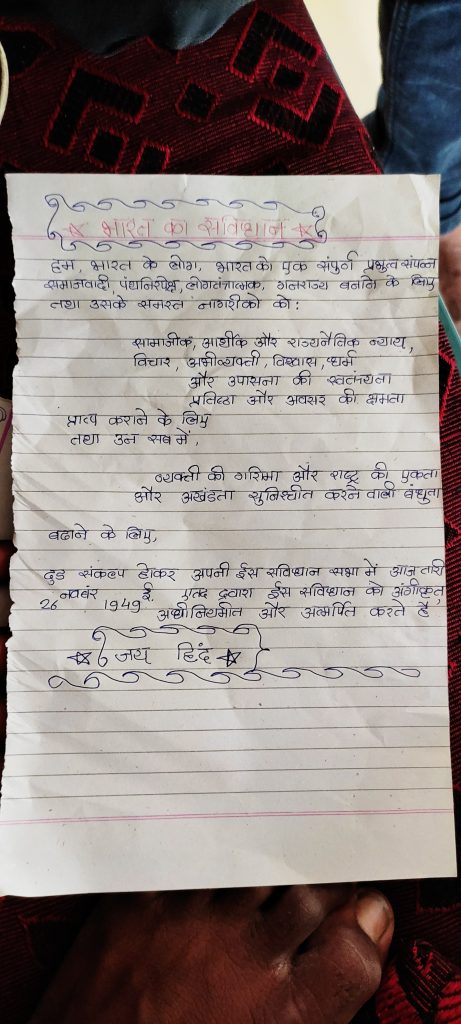 भारत का संविधान
हम, भारत के लोग, भारत को एक संपुर्ण प्रभुत्व संपन्न
समाजवादी, पंथनिरपेक्ष, लोगतंत्रात्मक, गनराज्य बनाने के लिए
तथा उसके समस्त नागरीको को:
सामाजीक, आर्थीक और राज्यनैतिक न्याय,
विचार, अभीव्यक्ती, विश्वास, धर्म
और उपासना की स्वतंत्र्यता
प्रतिष्ठा और अवसर की क्षमता
प्राप्प कराने के लिए
तथा उन सब में,
व्यक्ती की गरिमा और राष्ट्र की एकता
और अखंडता सुनिश्चीत करने वाली बंधुता
बढाने के लिए,
दुड संकल्प होकर अपनी ईस सविधान सभा में आज तारी
26 नवबंर 1949 ई. एतद द्वारा ईस सविधान को अंगीकृत,
अधीनियमीत और अत्मर्पित करते है
जय हिंद